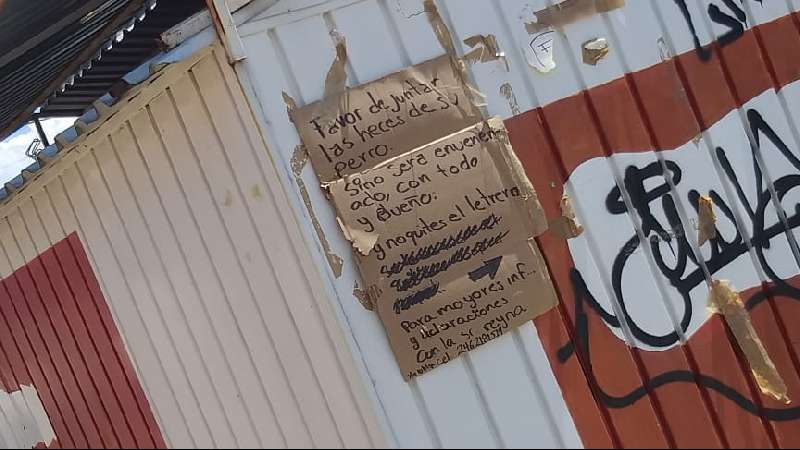 Favor de juntar
las heces de su
perro.
Sino será envenen
ado, con todo
y Dueño.
y no quites el letrero
Para mayores inf...
y aclaraciones
Con la sr reyna
cel 246219157